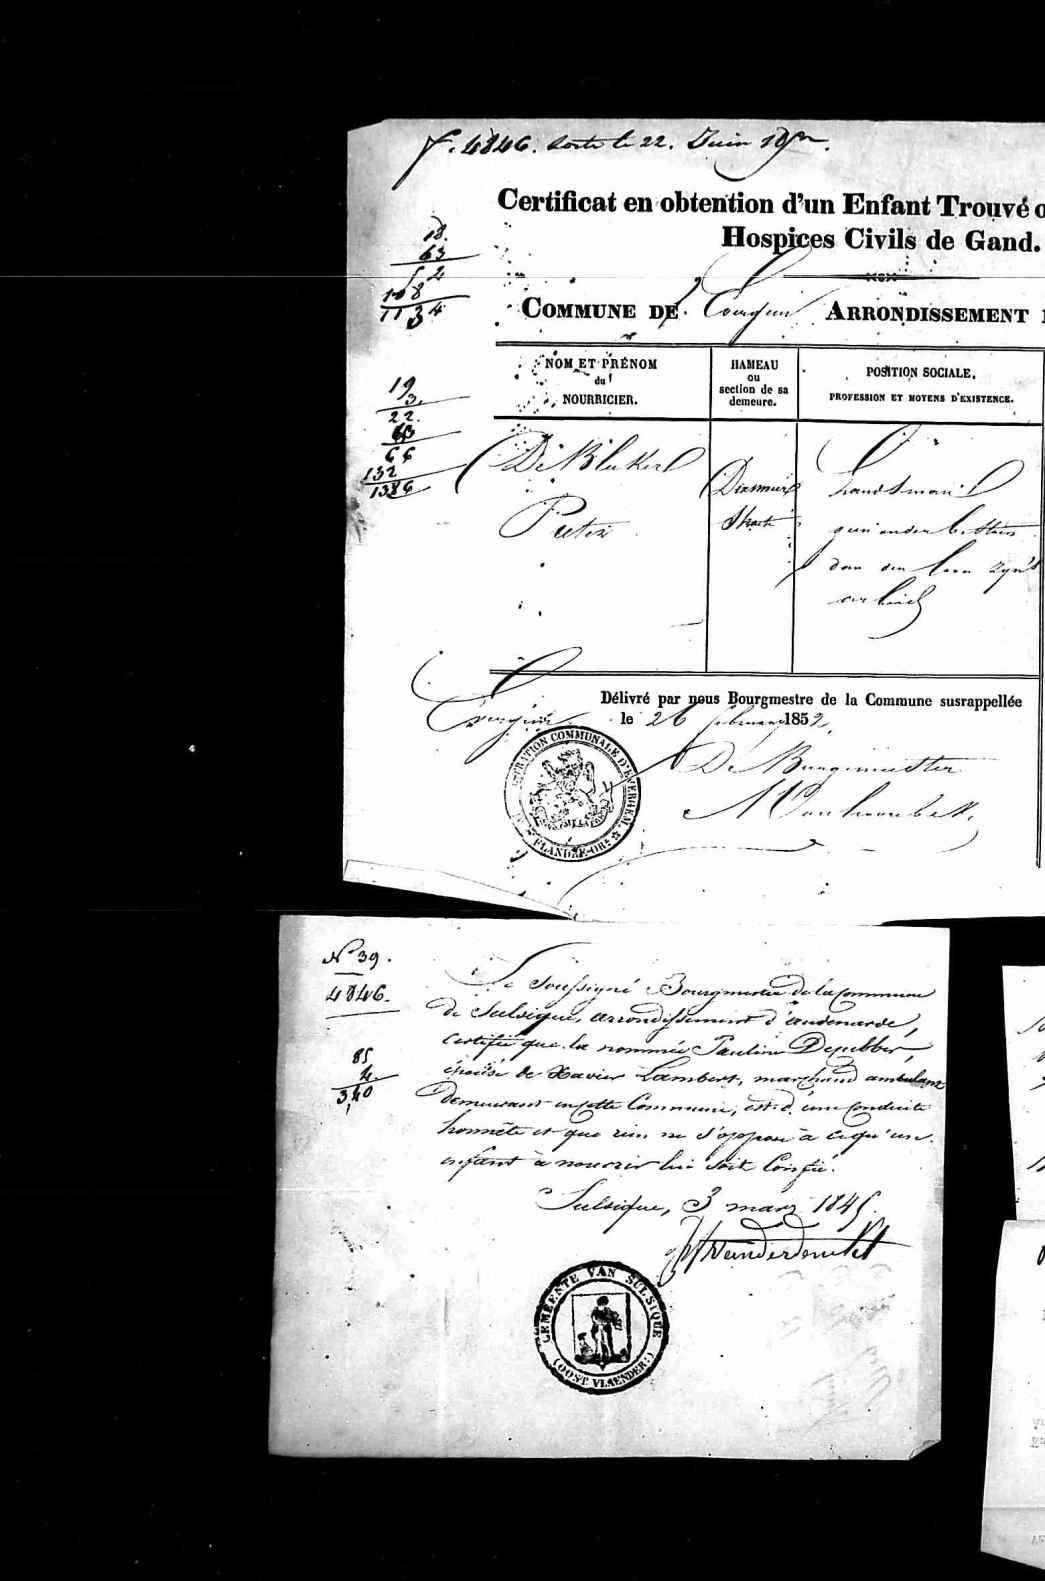 f. 4846. sorti le 22. Juin 18
Certificat en obtention d'un Enfant Trouvé o
Hospices Civils de Gand.
18.
63
52
108
1134
COMMUNE DE Evergem ARRONDISSEMENT
NOM ET PRÉNOM
du
NOURRICIER.
HAMEAU
ou
section de sa
demeure.
POSITION SOCIALE,
PROFESSION ET MOYENS D'EXISTENCE.
19
3.
22.
63
66
132
1386
De Bleeker
Pieter
landsman
geen ander
dan den zyn's
Délivré par nous Bourgmestre de la Commune susrappellée
Evergem le 26 februari 1852,
De Burgemeester
ADMINISTRATION COMMUNALE D'EVERGEM.
FLANDRE-ORle
N° 39.
4846.
85
4.
3,40
Le Soussigné Bourgmestre de la Commune
de Sulsique, arrondissement d'audenarde,
certifie que la nommée Pauline Depebber,
épouse de Xavier Lambert, marchand ambulant
demeurant en cette Commune, est d'une conduite
honnête et que rien ne s'oppose à ce qu'un
enfant à nourrir lui soit Confié.
Sulsique, 3 mars 1845.
Vanderdonckt
GEMEENTE VAN SULSIQUE
(OOST VLAENDER:)